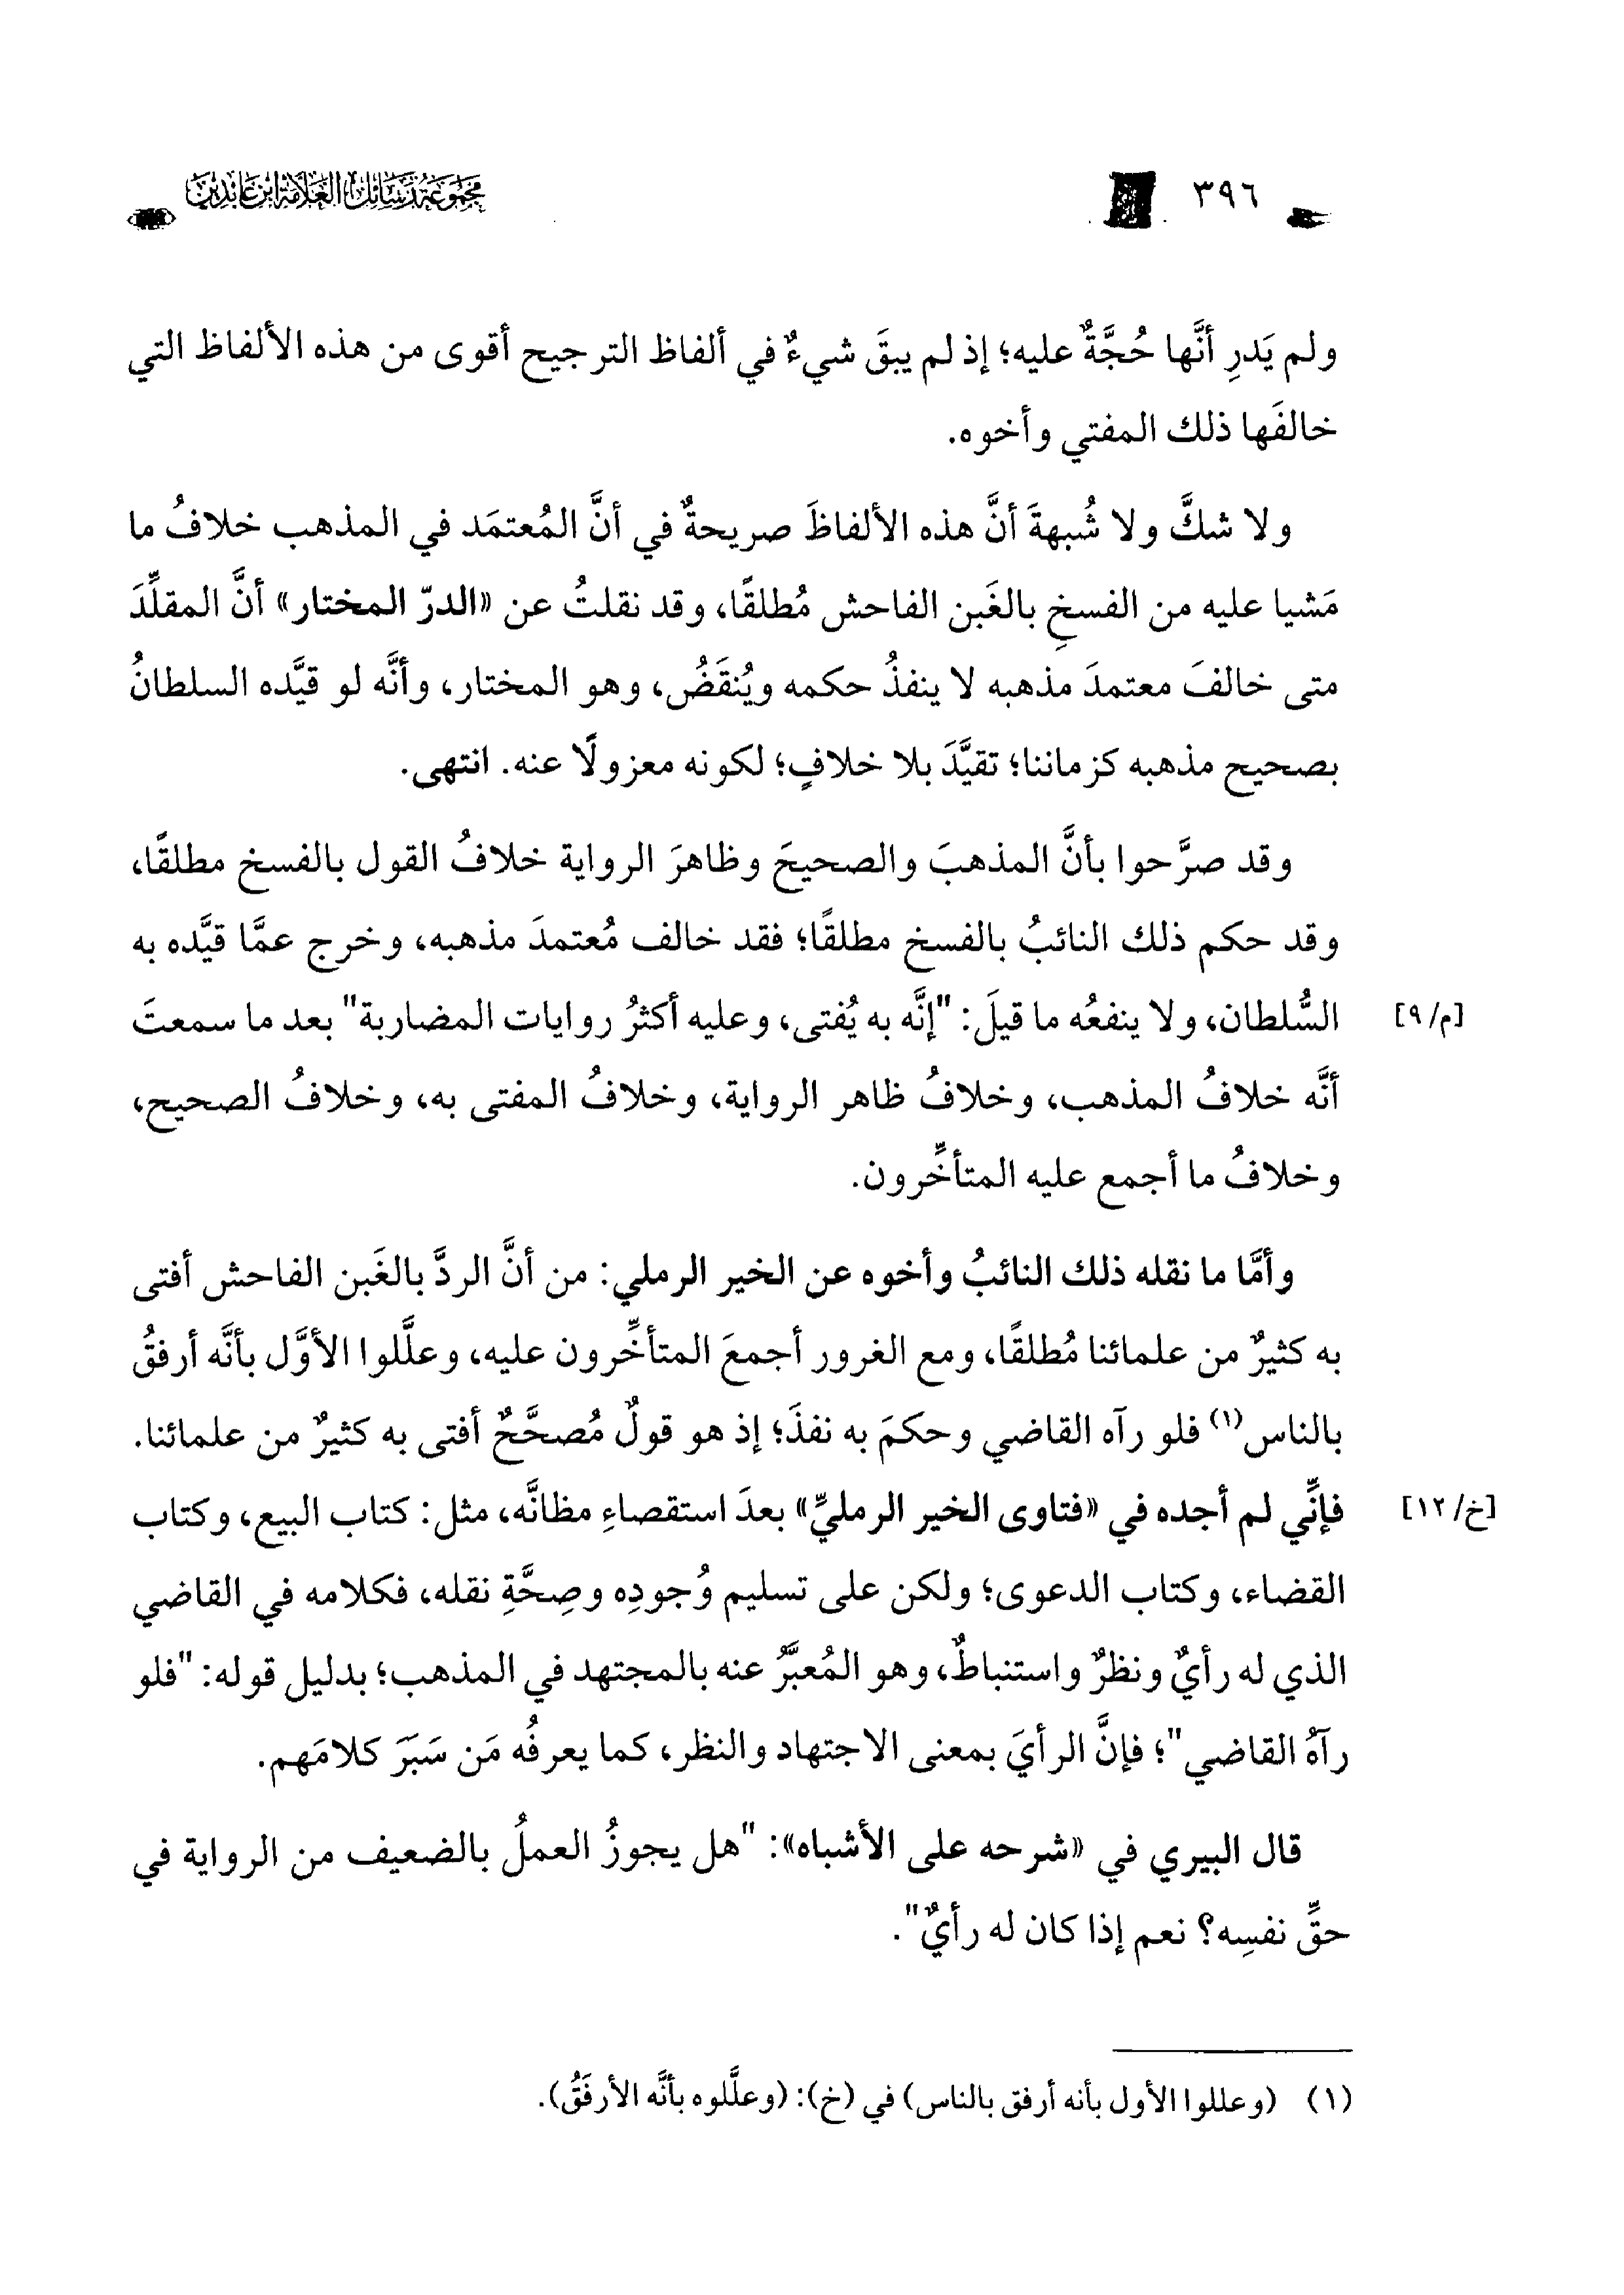 ٣٩٦
مجموعة رسائل العلامة ابن عابدين
ولم يَدرِ أنَّها حُجَّةٌ عليه؛ إذ لم يبقَ شيءٌ في ألفاظ الترجيح أقوى من هذه الألفاظ التي
خالفَها ذلك المفتي وأخوه.
ولا شكَّ ولا شُبهةَ أنَّ هذه الألفاظَ صريحةٌ في أنَّ المُعتمَد في المذهب خلافُ ما
مَشيا عليه من الفسخِ بالغَبن الفاحش مُطلقًا، وقد نقلتُ عن «الدرّ المختار» أنَّ المقلِّدَ
متى خالفَ معتمدَ مذهبه لا ينفذُ حكمه ويُنقَضُ، وهو المختار، وأنَّه لو قيَّده السلطانُ
بصحيح مذهبه كزماننا؛ تقيَّدَ بلا خلافٍ؛ لكونه معزولًا عنه. انتهى.
وقد صرَّحوا بأنَّ المذهبَ والصحيحَ وظاهرَ الرواية خلافُ القول بالفسخ مطلقًا،
وقد حكم ذلك النائبُ بالفسخ مطلقًا؛ فقد خالف مُعتمدَ مذهبه، وخرج عمَّا قيَّده به
[م/٩] السُّلطان، ولا ينفعُه ما قيلَ: "إنَّه به يُفتى، وعليه أكثرُ روايات المضاربة" بعد ما سمعتَ
أنَّه خلافُ المذهب، وخلافُ ظاهر الرواية، وخلافُ المفتى به، وخلافُ الصحيح،
وخلافُ ما أجمع عليه المتأخِّرون.
وأمَّا ما نقله ذلك النائبُ وأخوه عن الخير الرملي: من أنَّ الردَّ بالغَبن الفاحش أفتى
به كثيرٌ من علمائنا مُطلقًا، ومع الغرور أجمعَ المتأخِّرون عليه، وعلَّلوا الأوَّل بأنَّه أرفقُ
بالناس(١) فلو رآه القاضي وحكمَ به نفذَ؛ إذ هو قولٌ مُصحَّحٌ أفتى به كثيرٌ من علمائنا.
[خ/١٢] فإنِّي لم أجده في «فتاوى الخير الرمليِّ» بعدَ استقصاءِ مظانَّه، مثل: كتاب البيع، وكتاب
القضاء، وكتاب الدعوى؛ ولكن على تسليم وُجودِه وصِحَّةِ نقله، فكلامه في القاضي
الذي له رأيٌ ونظرٌ واستنباطٌ، وهو المُعبَّرُ عنه بالمجتهد في المذهب؛ بدليل قوله: "فلو
رآهُ القاضي"؛ فإنَّ الرأيَ بمعنى الاجتهاد والنظر، كما يعرفُه مَن سَبَرَ كلامَهم.
قال البيري في «شرحه على الأشباه»: "هل يجوزُ العملُ بالضعيف من الرواية في
حقِّ نفسِه؟ نعم إذا كان له رأيٌ".
(١) (وعللوا الأول بأنه أرفق بالناس) في (خ): (وعلَّلوه بأنَّه الأرفَقُ).